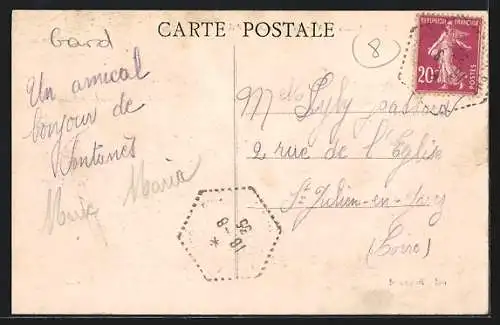 CARTE POSTALE
Gard
8
REPUBLIQUE FRANÇAISE
20c
POSTES
Un amical
bonjour de
Maria
Mlle
2 rue de l'Eglise
St Julien-en-Jarez
(Loire)
18-8
35
*